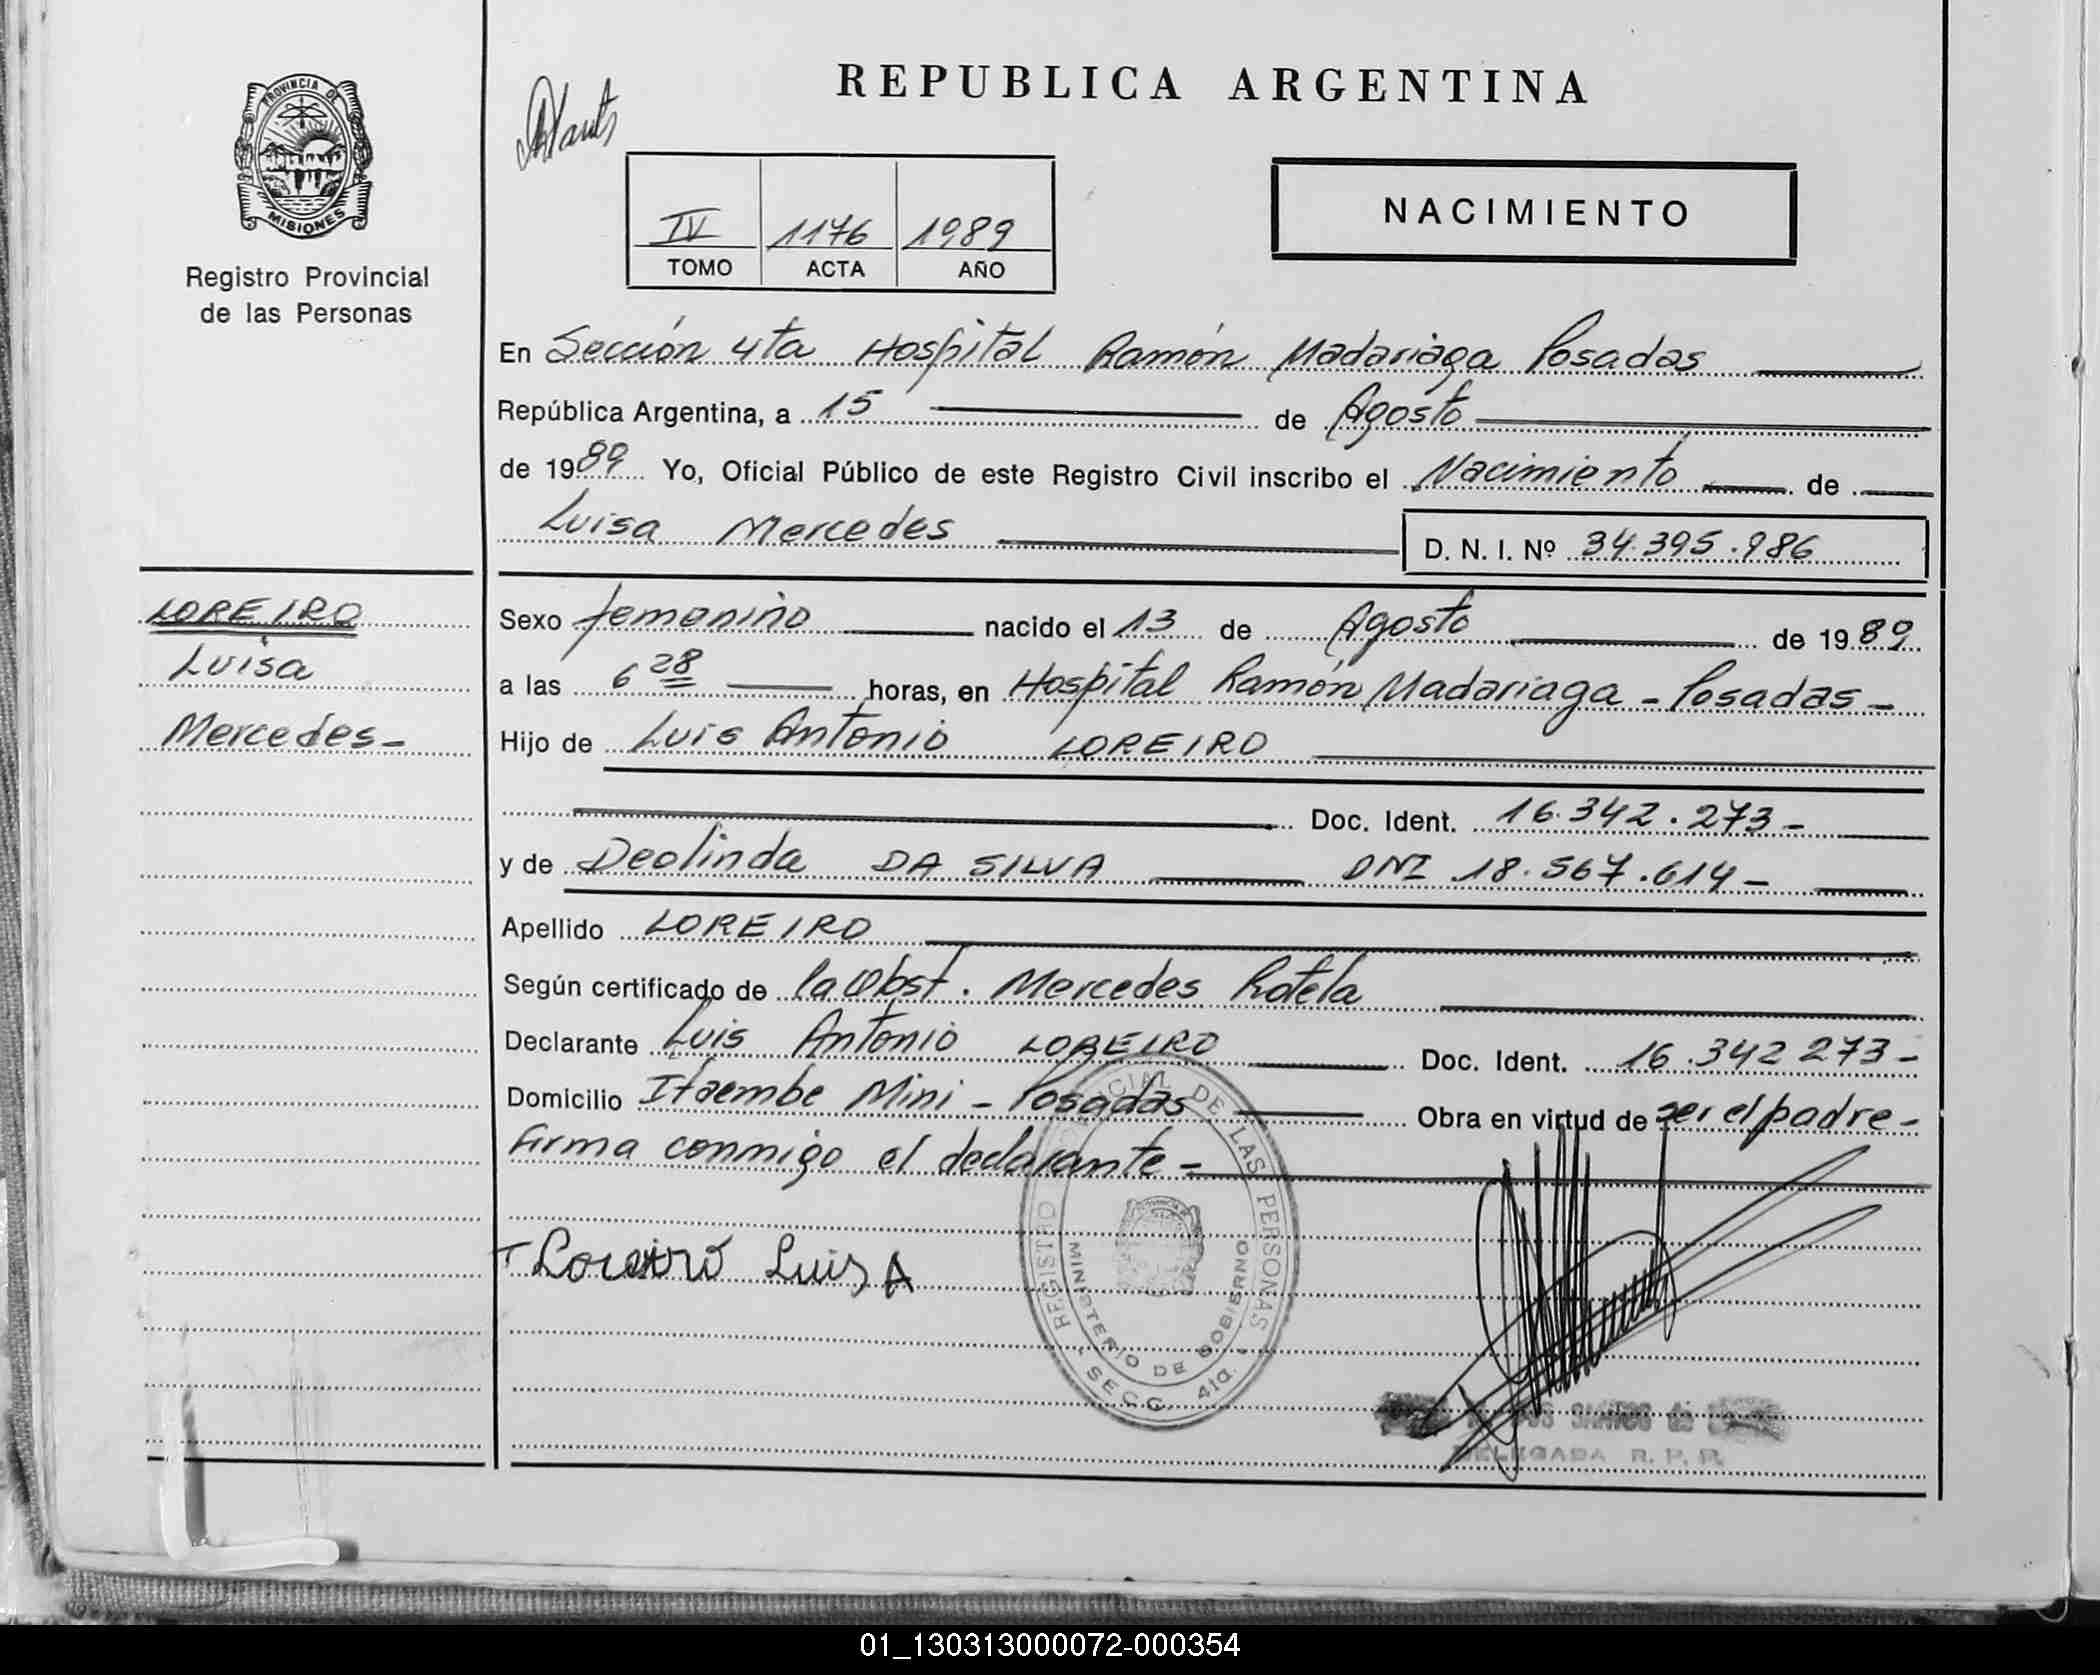 PROVINCIA DE
MISIONES
Registro Provincial
de las Personas
REPUBLICA ARGENTINA
IV 1176 1989
TOMO ACTA AÑO
NACIMIENTO
En Sección 4ta Hospital Ramón Madariaga Posadas
República Argentina, a 15 de Agosto
de 1989 Yo, Oficial Público de este Registro Civil inscribo el Nacimiento de
Luisa Mercedes D. N. I. Nº 34.395.986
LOREIRO
Luisa
Mercedes-
Sexo femenino nacido el 13 de Agosto de 1989
a las 6 28 horas, en Hospital Ramón Madariaga - Posadas -
Hijo de Luis Antonio LOREIRO
Doc. Ident. 16.342.273-
y de Deolinda DA SILVA DNI 18.567.614-
Apellido LOREIRO
Según certificado de la Obst. Mercedes Rotela
Declarante Luis Antonio LOREIRO Doc. Ident. 16.342 273-
Domicilio Itaembe Mini - Posadas Obra en virtud de ser el padre-
Firma conmigo el declarante-
Loreiro Luis A
REGISTRO PROVINCIAL DE LAS PERSONAS
MINISTERIO DE GOBIERNO
SECC. 4ta.
SANTOS de
DELEGADA R. P. P.
01_130313000072-000354